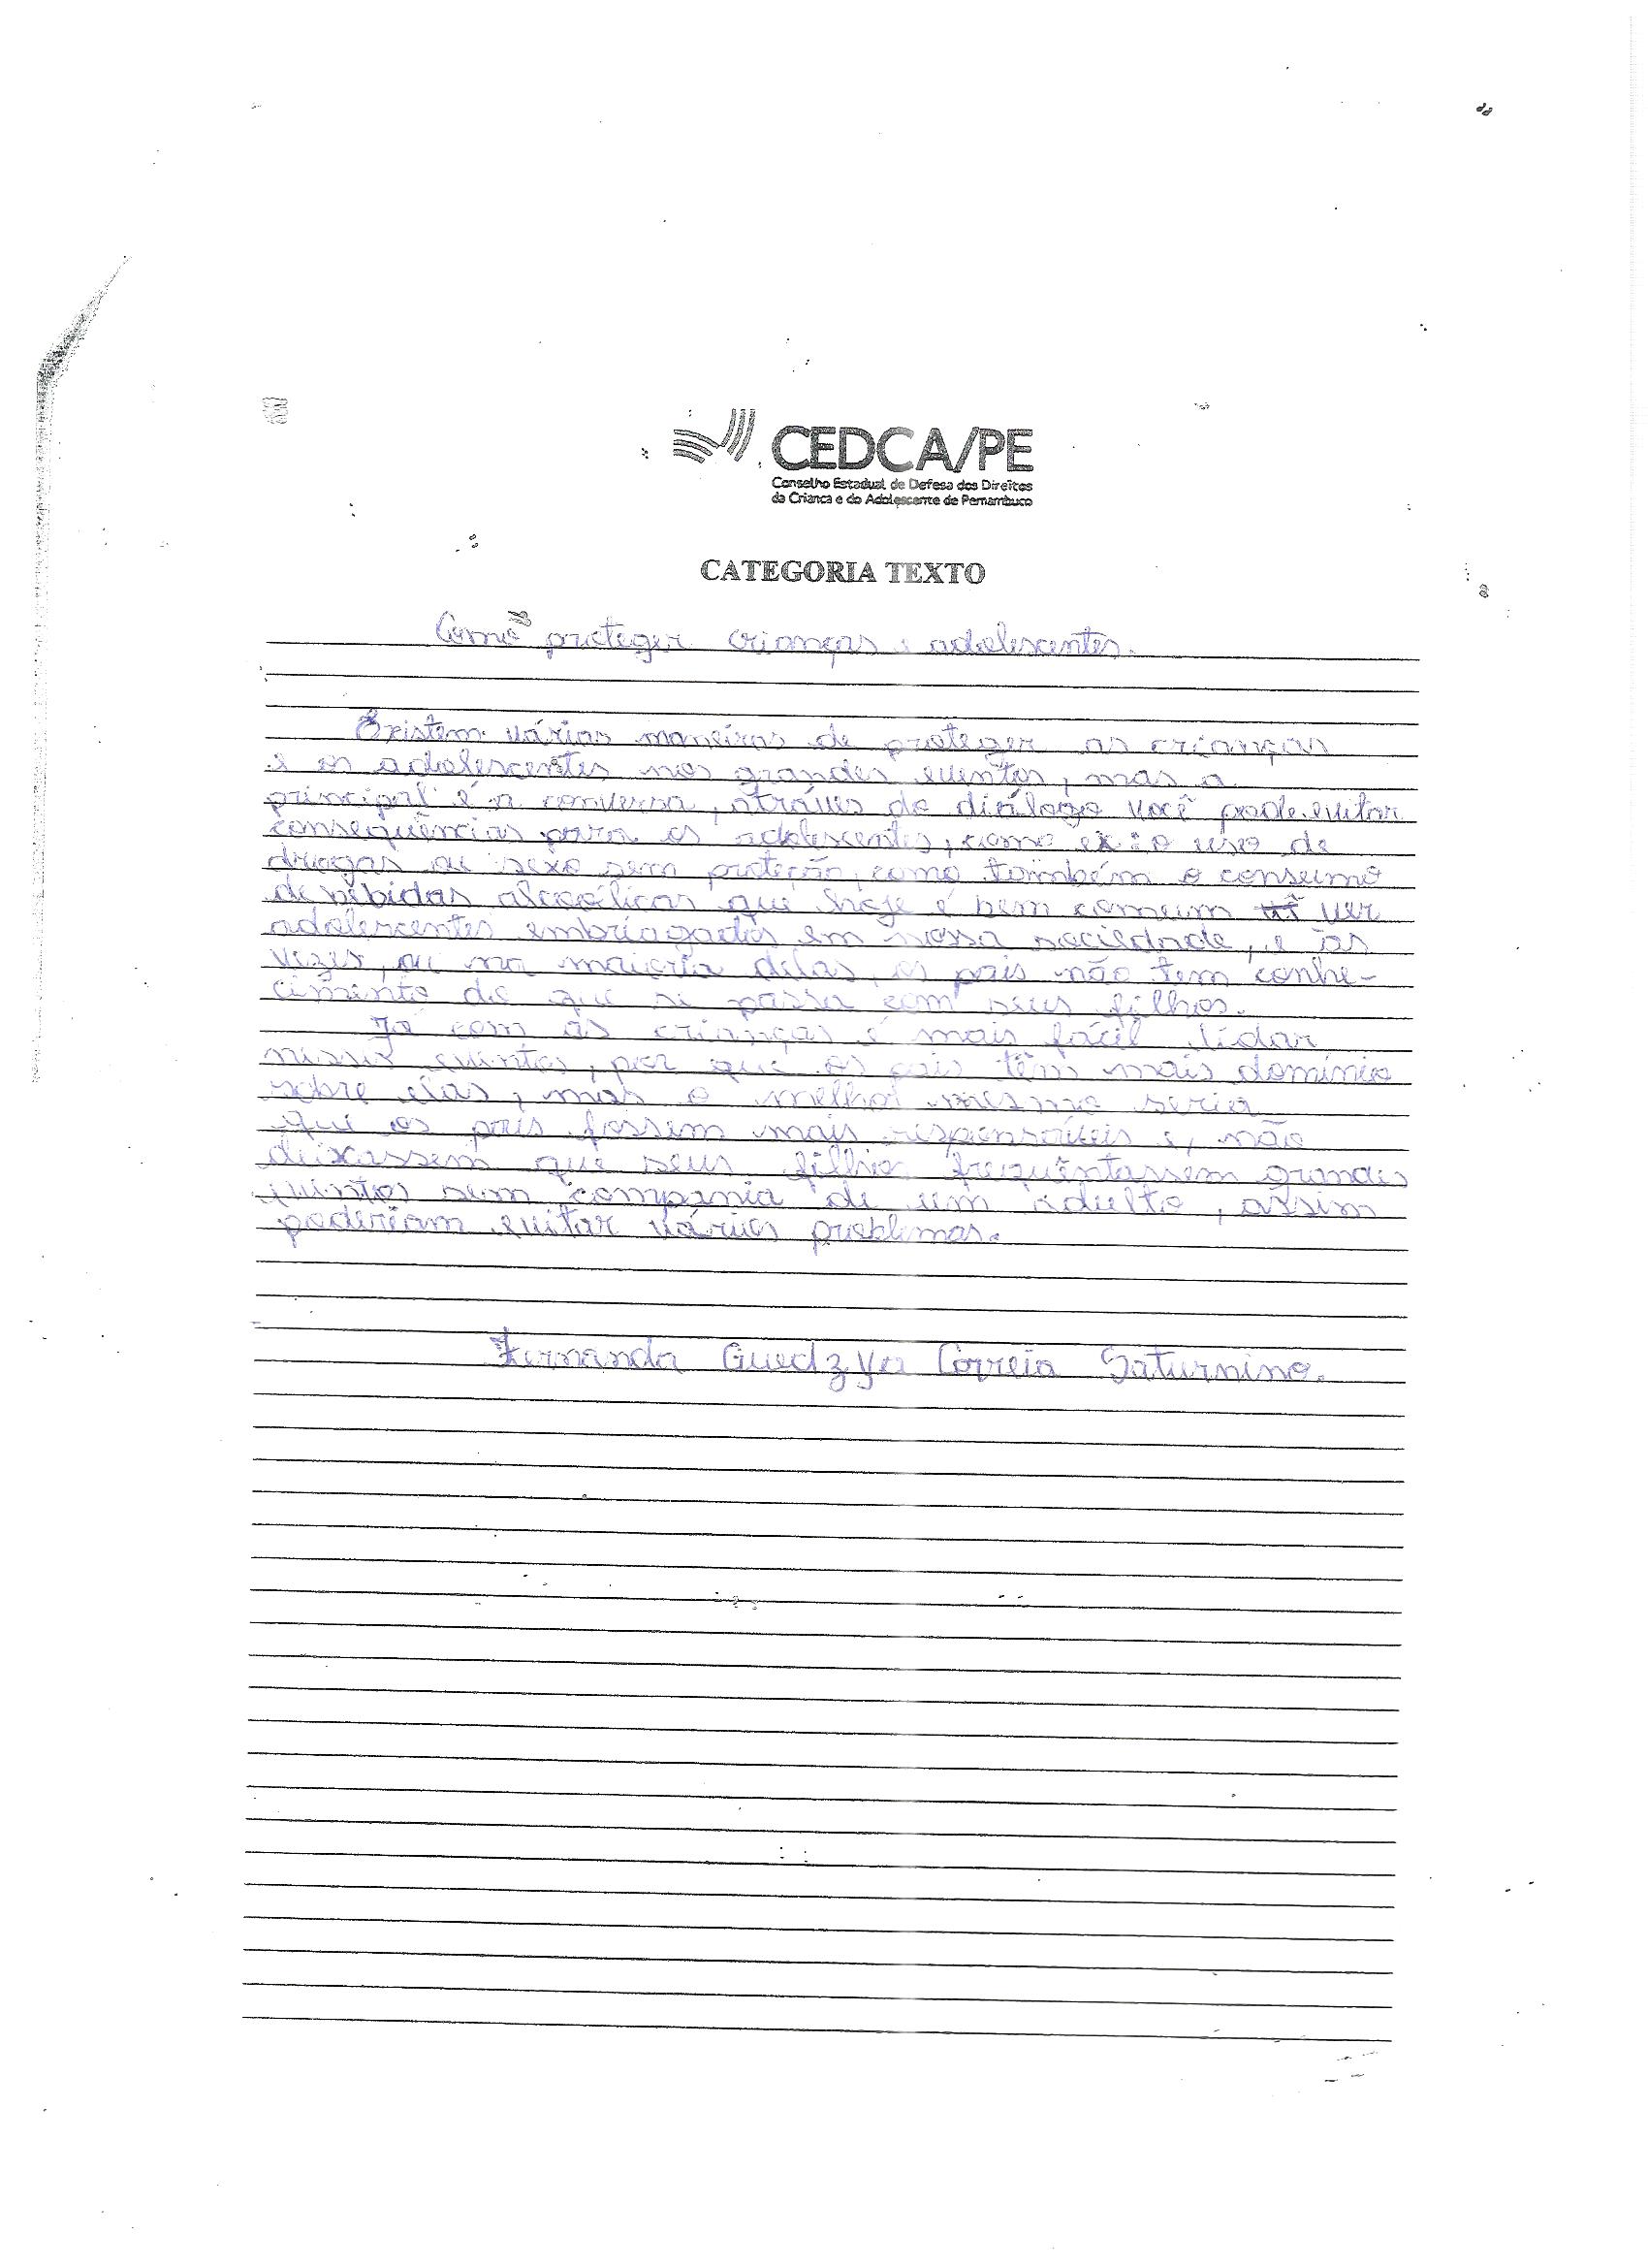 CEDCA/PE
Conselho Estadual de Defesa dos Direitos
da Criança e do Adolescente de Pernambuco
CATEGORIA TEXTO
Como proteger crianças e adolescentes.
Existem várias maneiras de proteger as crianças
e os adolescentes nos grandes eventos, mas a
principal é a conversa, através do diálogo você pode evitar
consequências para os adolescentes, como ex: o uso de
drogas ou sexo sem proteção, como também o consumo
de bebidas alcoólicas que hoje é bem comum ver
adolescentes embriagados em nossa sociedade, e às
vezes, ou na maioria delas, os pais não tem conhe-
cimento do que se passa com seus filhos.
Já com as crianças é mais fácil lidar
nesses eventos, por que os pais têm mais domínio
sobre elas, mas o melhor mesmo seria
que os pais fossem mais responsáveis e, não
deixassem que seus filhos frequêntassem grandes
eventos sem compania de um adulto, assim
poderiam evitar vários problemas.
Fernanda Guedzya Correia Saturnino.